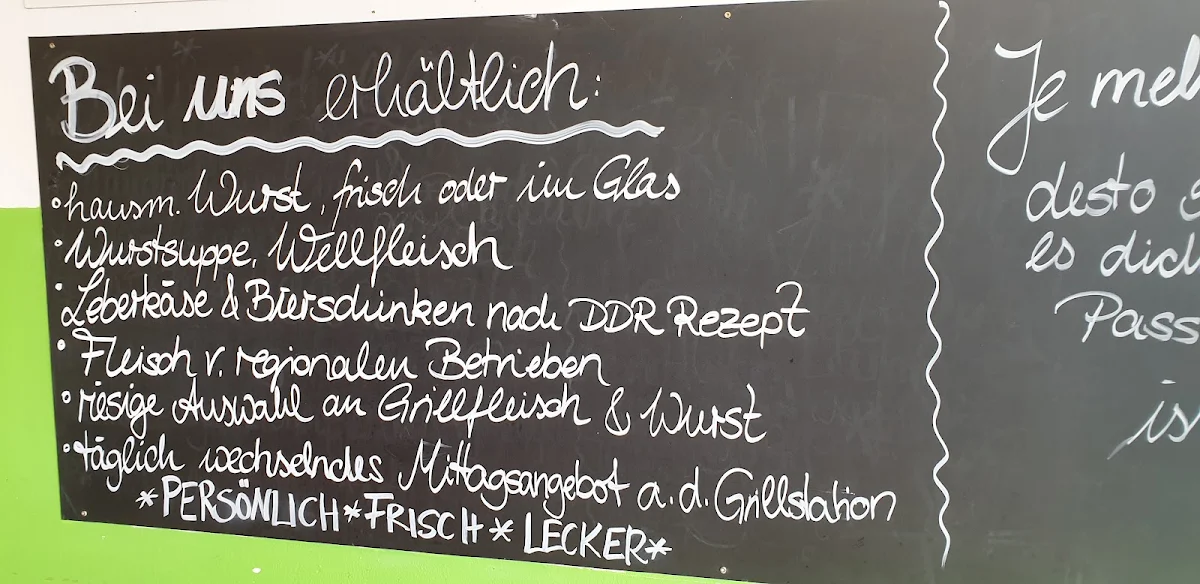 Bei uns erhältlich:
• hausm. Wurst, frisch oder im Glas
• Wurstsuppe, Wellfleisch
• Leberkäse & Bierschinken nach DDR Rezept
• Fleisch v. regionalen Betrieben
• riesige Auswahl an Grillfleisch & Wurst
• täglich wechselndes Mittagsangebot a. d. Grillstation
*PERSÖNLICH*FRISCH*LECKER*
Je
desto
es dich
Pass